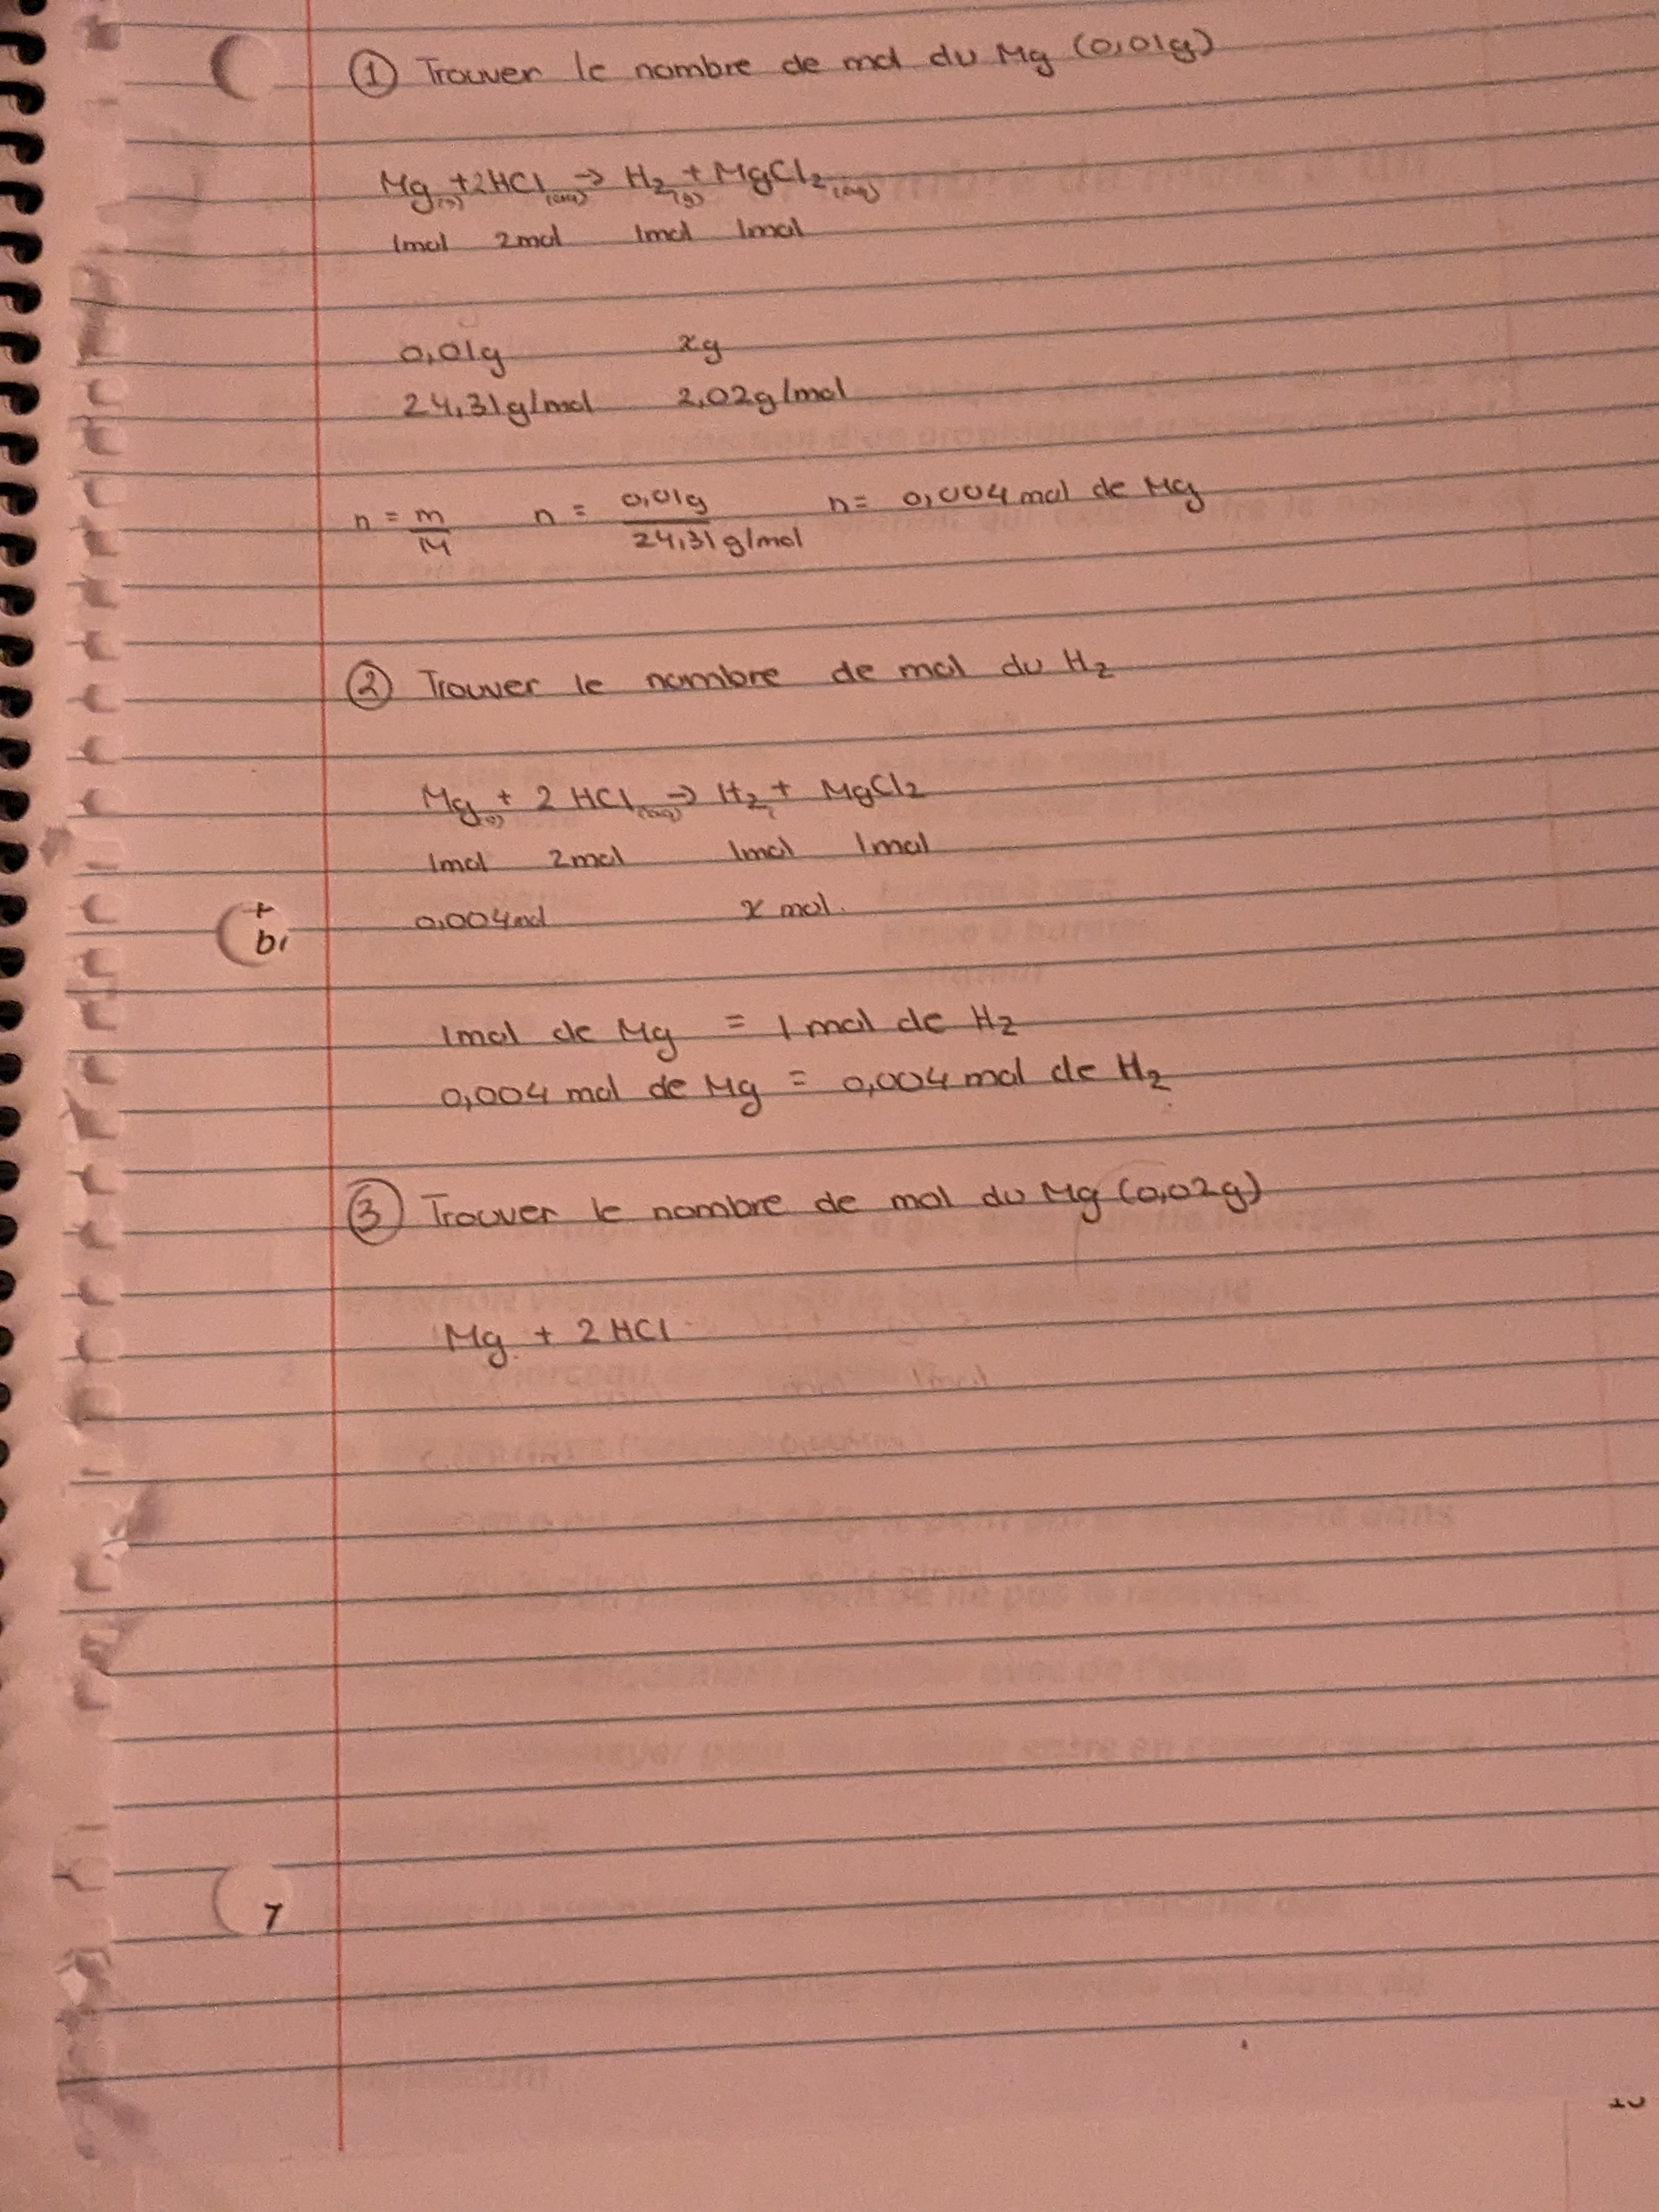 ① Trouver le nombre de mol du Mg (0,01g)
Mg(s) + 2HCl(aq) → H2(g) + MgCl2(aq)
1mol 2mol 1mol 1mol
0,01g xg
24,31g/mol 2,02g/mol
n = m/M n = 0,01g/24,31g/mol n = 0,004 mol de Mg
② Trouver le nombre de mol du H2
Mg(s) + 2 HCl(aq) → H2 + MgCl2
1mol 2mol 1mol 1mol
0,004mol x mol.
1mol de Mg = 1 mol de H2
0,004 mol de Mg = 0,004 mol de H2
③ Trouver le nombre de mol du Mg (0,02g)
Mg + 2 HCl